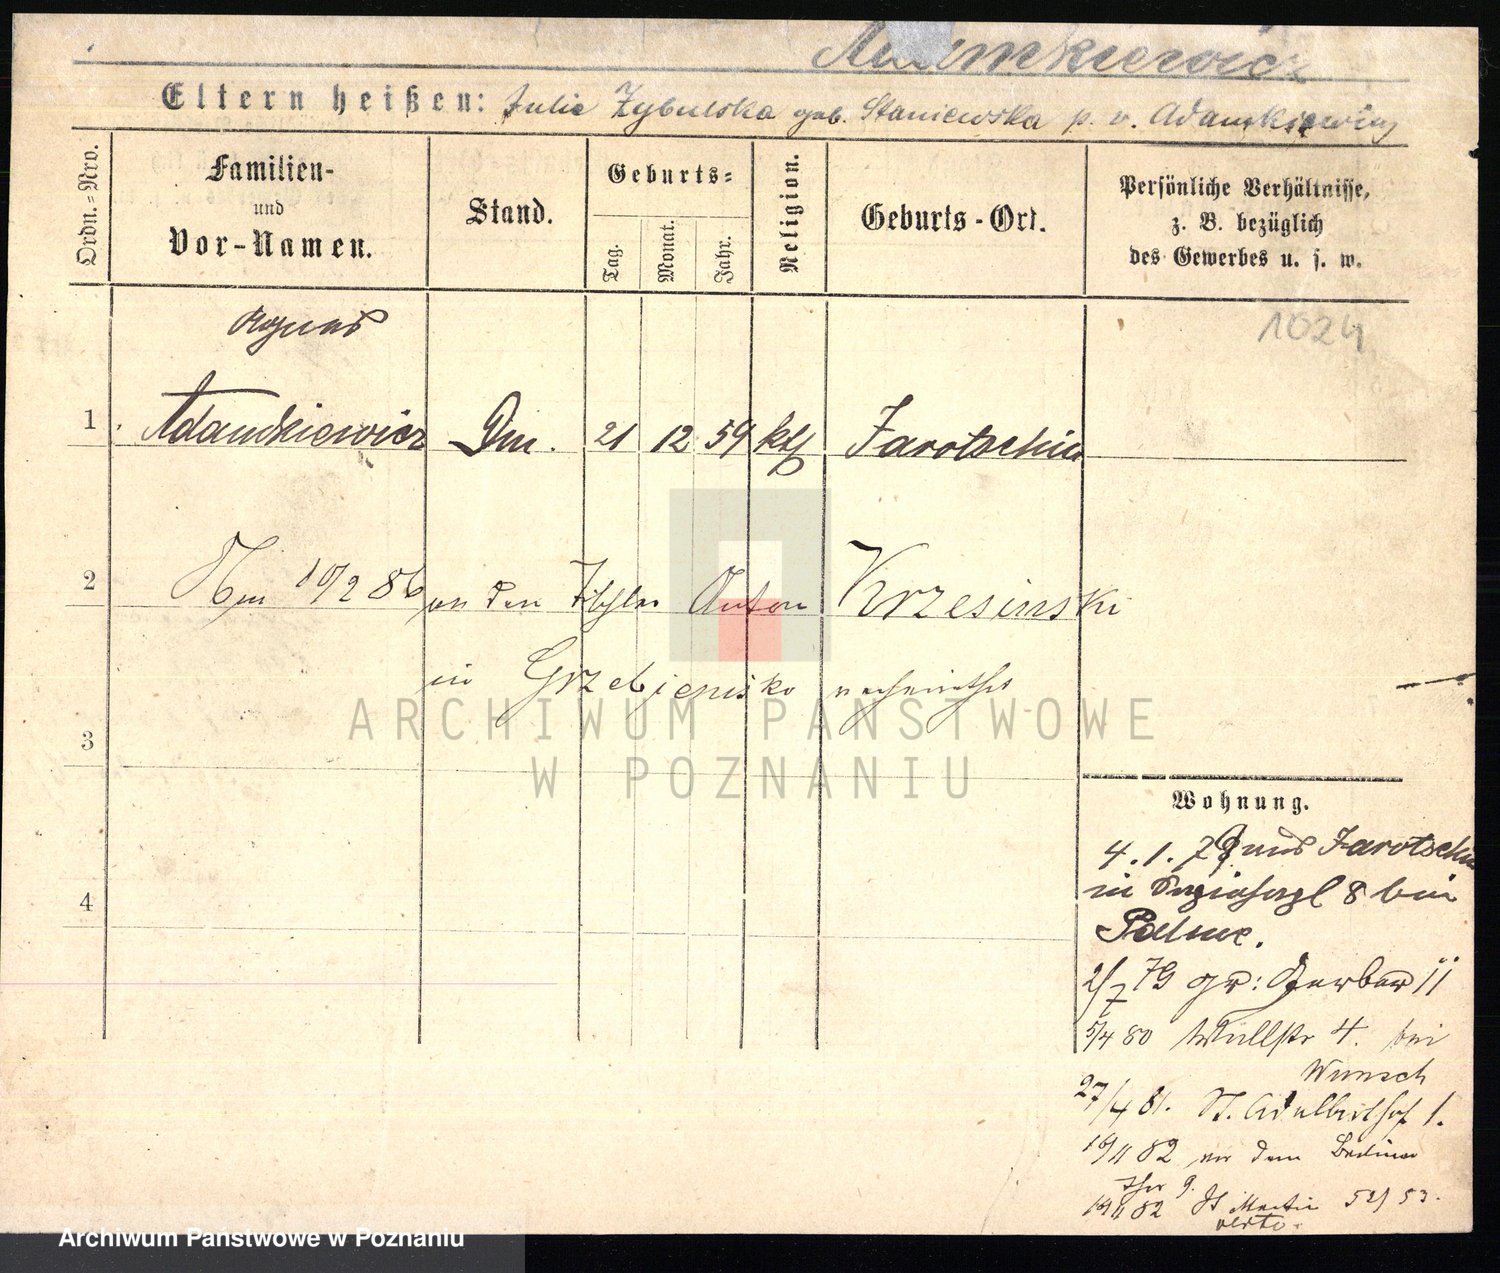 Adamkiewicz
Eltern heißen: Julie Zybulska geb. Staniewska p. v. Adamkiewicz
Ordn.=Nro.
Familien-
und
Vor-Namen.
Stand.
Geburts=
Tag.
Monat.
Jahr.
Religion.
Geburts-Ort.
Persönliche Verhältnisse,
z. B. bezüglich
des Gewerbes u. s. w.
1024
Agnes
1 Adamkiewicz Dm. 21 12 59 kth Jarotschin
2 10/2 86 an den Anton Krzesinski
in Grzebienisko verheirathet
3
4
ARCHIWUM PAŃSTWOWE
W POZNANIU
Wohnung.
4.1.79 aus Jarotschin
in 8 bei
Palme.
2/7 79 gr: Gerber 11
5/4 80 Wallstr 4. bei
Wunsch
27/4 81. St. Adalberthof 1.
19/11 82 vor dem Berliner
Thor 9.
19/11 82 St Martin 52/53.
verte.
Archiwum Państwowe w Poznaniu